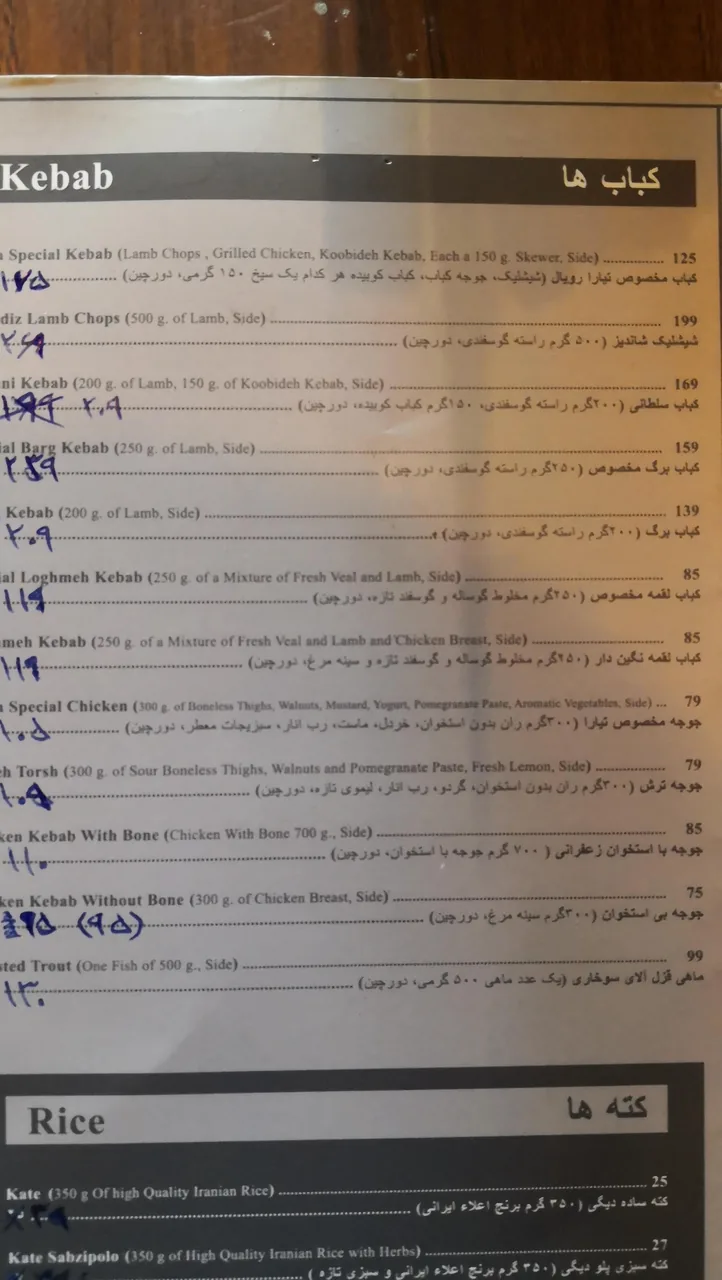 Kebab کباب ها
Special Kebab (Lamb Chops , Grilled Chicken, Koobideh Kebab, Each a 150 g. Skewer, Side) ................ 125
کباب مخصوص تیارا رویال (شیشلیک، جوجه کباب، کباب کوبیده هر کدام یک سیخ ۱۵۰ گرمی، دورچین) ................
diz Lamb Chops (500 g. of Lamb, Side) ................ 199
شیشلیک شاندیز (۵۰۰ گرم راسته گوسفندی، دورچین) ................
ni Kebab (200 g. of Lamb, 150 g. of Koobideh Kebab, Side) ................ 169
کباب سلطانی (۲۰۰گرم راسته گوسفندی، ۱۵۰گرم کباب کوبیده، دورچین) ................ ۲۰۹
ial Barg Kebab (250 g. of Lamb, Side) ................ 159
کباب برگ مخصوص (۲۵۰گرم راسته گوسفندی، دورچین) ................
Kebab (200 g. of Lamb, Side) ................ 139
کباب برگ (۲۰۰گرم راسته گوسفندی، دورچین) ................ ۲۰۹
ial Loghmeh Kebab (250 g. of a Mixture of Fresh Veal and Lamb, Side) ................ 85
کباب لقمه مخصوص (۲۵۰گرم مخلوط گوساله و گوسفند تازه، دورچین) ................ ۱۱۹
meh Kebab (250 g. of a Mixture of Fresh Veal and Lamb and Chicken Breast, Side) ................ 85
کباب لقمه نگین دار (۲۵۰گرم مخلوط گوساله و گوسفند تازه و سینه مرغ، دورچین) ................ ۱۱۹
Special Chicken (300 g. of Boneless Thighs, Walnuts, Mustard, Yogurt, Pomegranate Paste, Aromatic Vegetables, Side) ... 79
جوجه مخصوص تیارا (۳۰۰گرم ران بدون استخوان، خردل، ماست، رب انار، سبزیجات معطر، دورچین) ................ ۱۰۵
eh Torsh (300 g. of Sour Boneless Thighs, Walnuts and Pomegranate Paste, Fresh Lemon, Side) ................ 79
جوجه ترش (۳۰۰گرم ران بدون استخوان، گردو، رب انار، لیموی تازه، دورچین) ................
ken Kebab With Bone (Chicken With Bone 700 g., Side) ................ 85
جوجه با استخوان زعفرانی ( ۷۰۰ گرم جوجه با استخوان، دورچین) ................ ۱۱۰
ken Kebab Without Bone (300 g. of Chicken Breast, Side) ................ 75
جوجه بی استخوان (۳۰۰گرم سینه مرغ، دورچین) ................ (۹۵)
sted Trout (One Fish of 500 g., Side) ................ 99
ماهی قزل آلای سوخاری (یک عدد ماهی ۵۰۰ گرمی، دورچین) ................ ۱۳۰
Rice کته ها
Kate (350 g Of high Quality Iranian Rice) ................ 25
کته ساده دیگی (۳۵۰ گرم برنج اعلاء ایرانی) ................
Kate Sabzipolo (350 g of High Quality Iranian Rice with Herbs) ................ 27
کته سبزی پلو دیگی (۳۵۰ گرم برنج اعلاء ایرانی و سبزی تازه ) ................